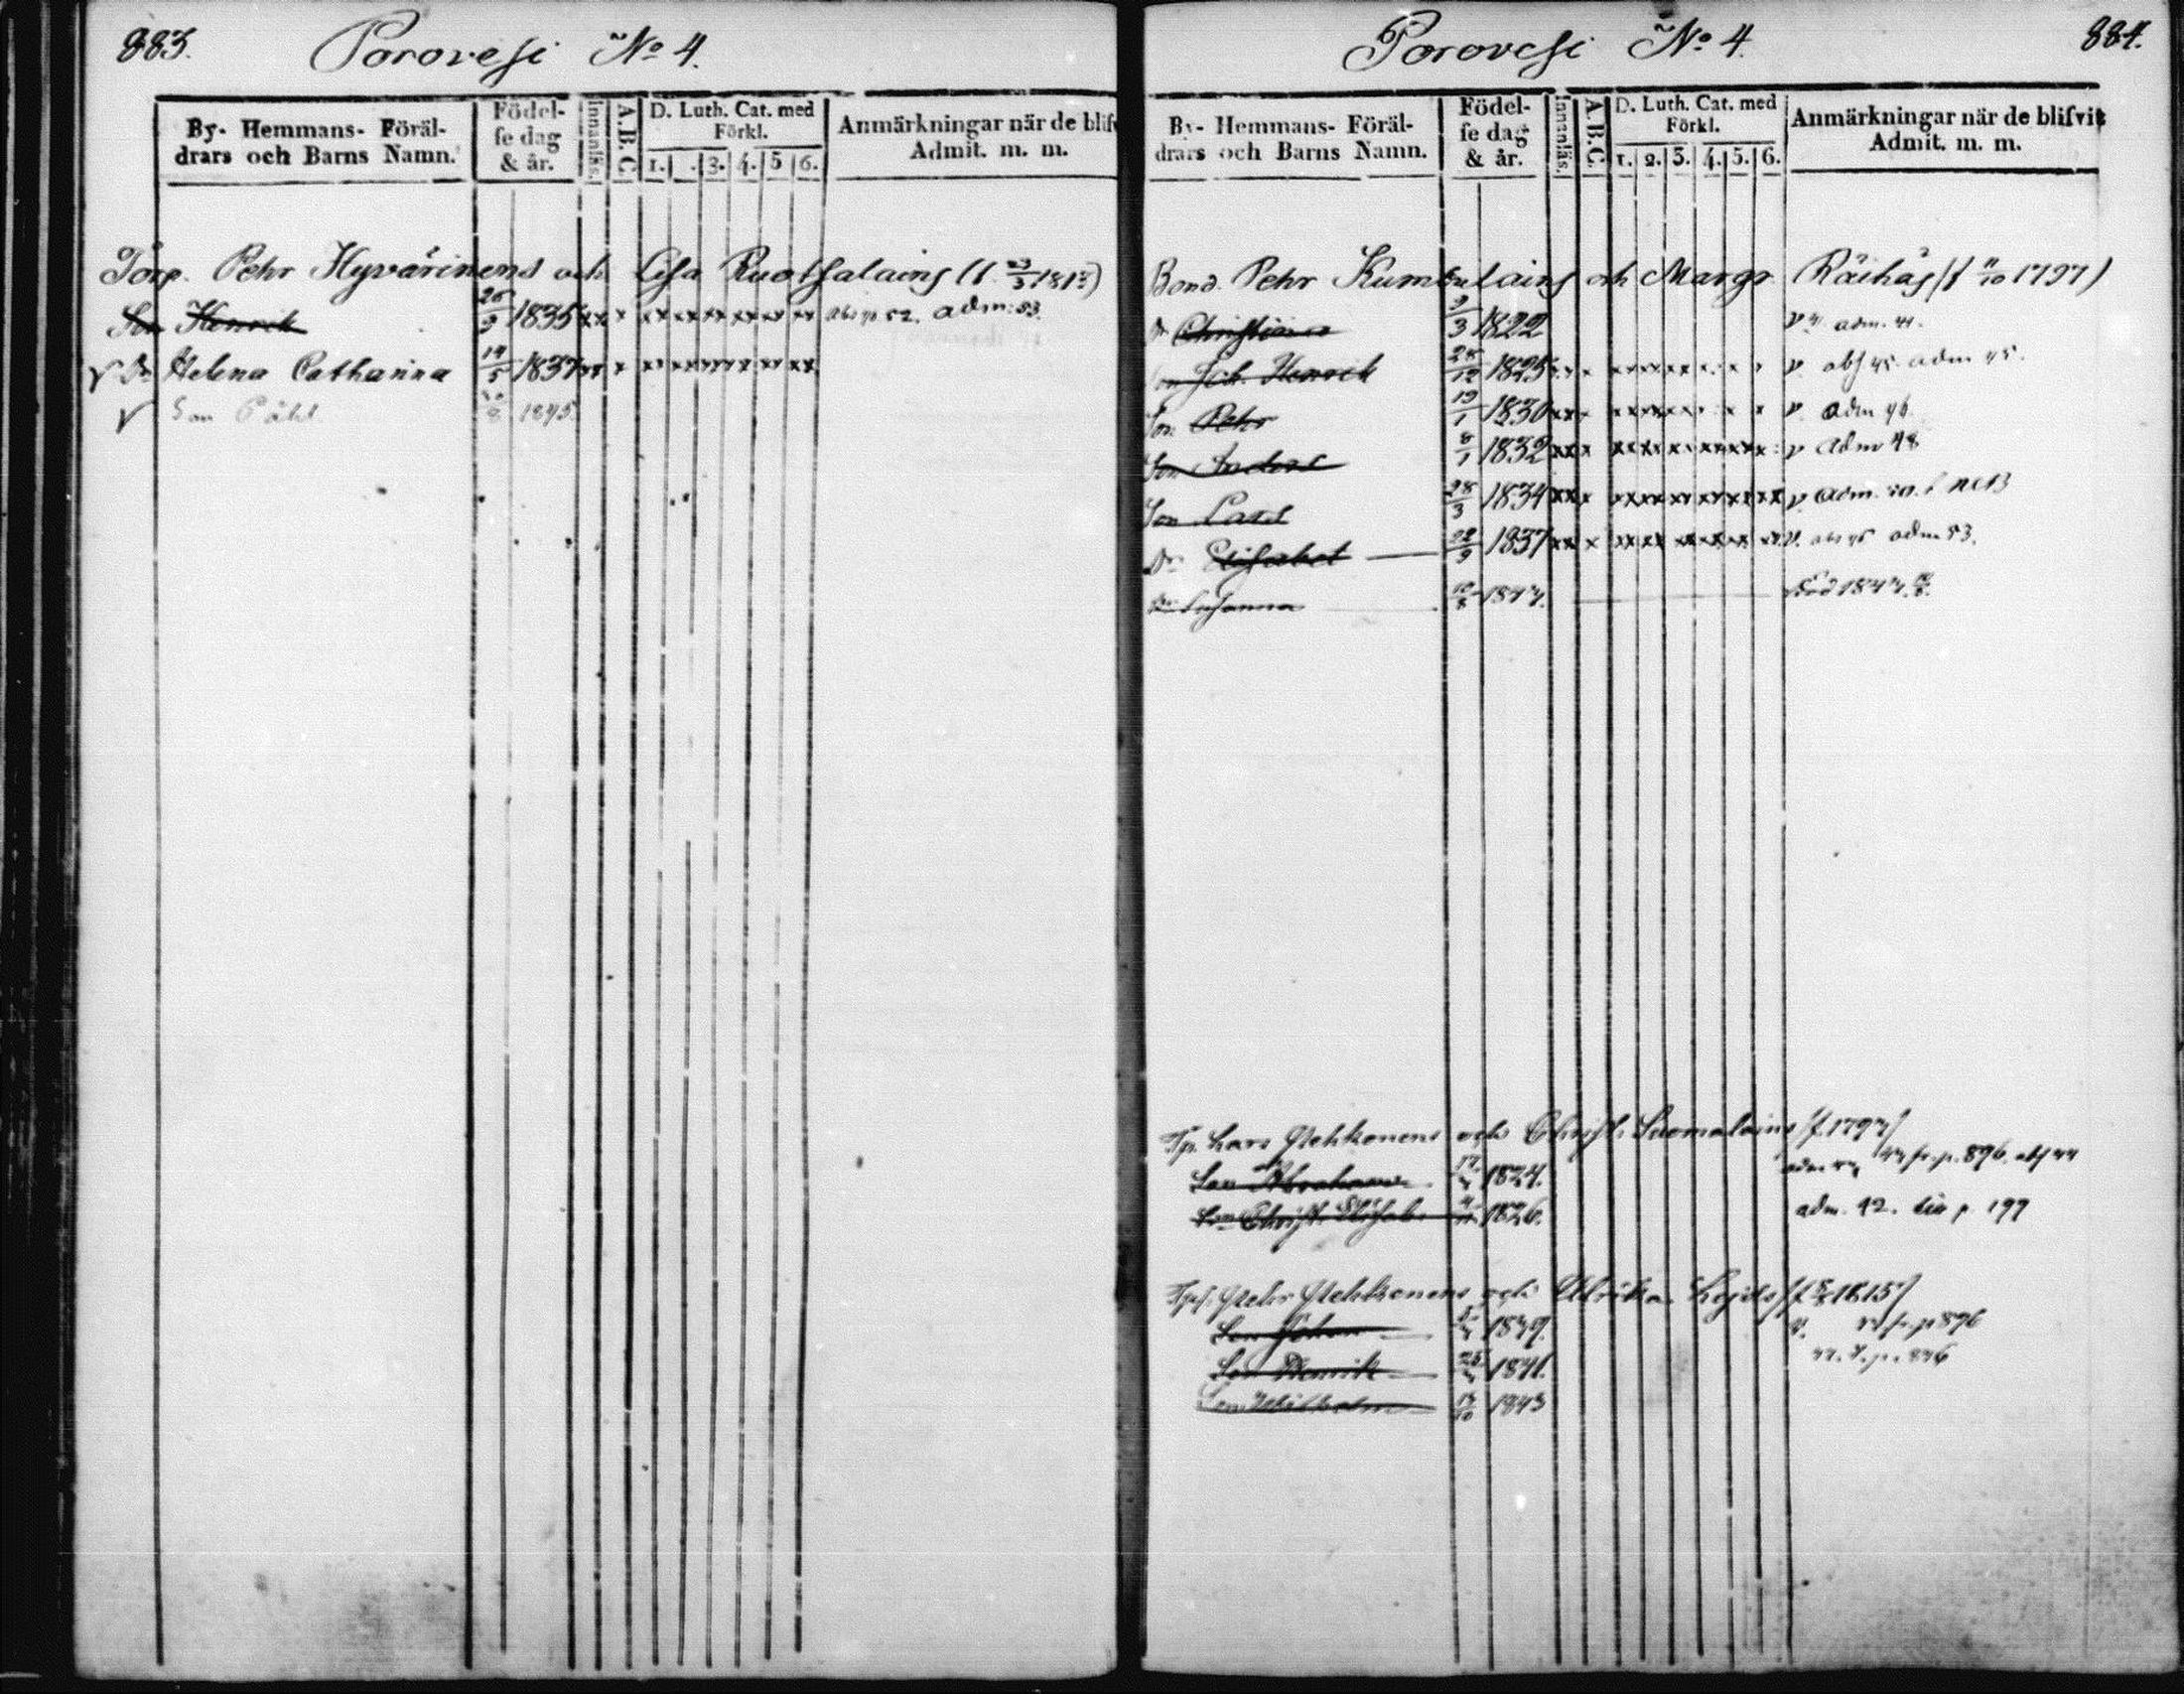 883.
Porovesi No 4.
By- Hemmans- Föräl-
drars och Barns Namn.
Födel-
se dag
& år.
Innanläs.
A.B.C
D. Luth. Cat. med
Förkl.
1. . 3. 4. 5 6.
Anmärkningar när de blifv
Admit. m. m.
Torp. Pehr Hyvärinens och Lisa Ruotsalains (f. 23/3 181)
Son Henrik 26/9 1835 xx x xx xx xx xx xx xx 52. adm: 53.
v Dr Helena Catharina 14/5 1837 xx x
v Son Påhl 1845.
Porovesi No 4.
884.
By- Hemmans- Föräl-
drars och Barns Namn.
Födel-
se dag
& år.
Innanläs.
A.B.C.
D. Luth. Cat. med
Förkl.
1. 2. 3. 4. 5. 6.
Anmärkningar när de blifvit
Admit. m. m.
Bond. Pehr Kumpulains och Margr. Räihäs (f 11/10 1797)
Dr Christina 9/3 1822 v 41. adm. 44.
Son Joh. Henrik 28/12 1825 v. abs 45. adm 45.
Son Pehr 19/1 1830 v. adm 46.
Son Anders 8/1 1832 v adm 48
Son Lars 28/3 1834 v. adm. 50.
Dr Elisabet 22/9 1837 v. adm 53.
Dr Susanna 10/8 1844. död 1844.
Tp. Lars Pehkonens och Christ. Suomalains (f. 1797)
Son Abraham 1824. fr. p. 896. abs 44
Christ. Elisab. 1826. adm. 42. p. 197
Pehr Pehkonens och Ulrika (f 1815)
Son Johan 1839. v. fr. p 896
Son Henrik 25 1841.
Son Wilhelm 1843